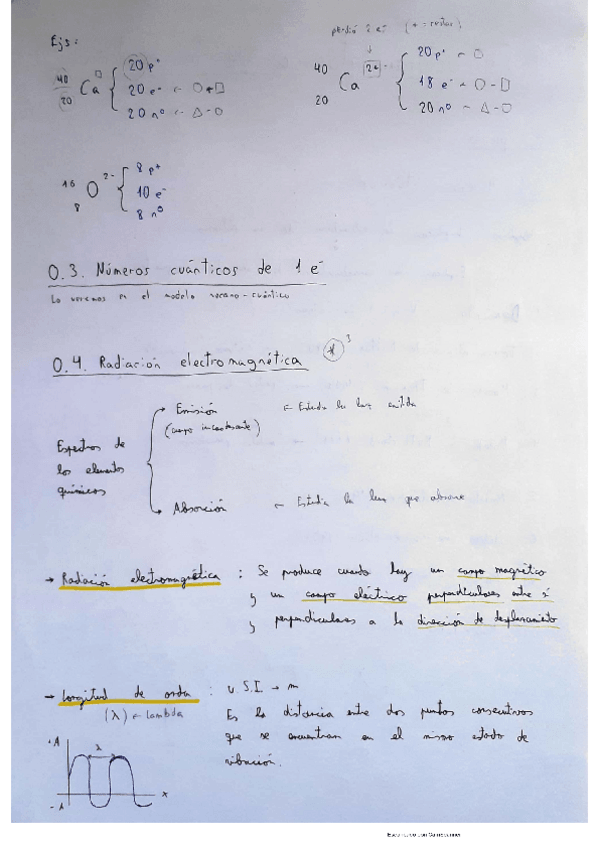 Ejs:
perdió 2 e⁻ (+ = restar)
40 20 Ca { 20 p⁺
20 e⁻ ← ○+□
20 n⁰ ← △-○
40 20 Ca 2+ { 20 p⁺ ← ○
18 e⁻ ← ○-□
20 n⁰ ← △-○
16 8 O 2- { 8 p⁺
10 e⁻
8 n⁰
0.3. Números cuánticos de 1 e⁻
Lo veremos en el modelo mecano-cuántico
0.4. Radiación electromagnética * 3
Espectros de los elementos químicos
Emisión ← Estudia la luz emitida
(cuerpo incandescente)
Absorción ← Estudia la luz que absorve
→ Radiación electromagnética : Se produce cuando hay un campo magnético
y un campo eléctrico perpendiculares entre sí
y perpendiculares a la dirección de desplazamiento
→ Longitud de onda : U.S.I → m
(λ) ← lambda
Es la distancia entre dos puntos consecutivos
que se encuentran en el mismo estado de
vibración.
+A λ
-A x
Escaneado con CamScanner